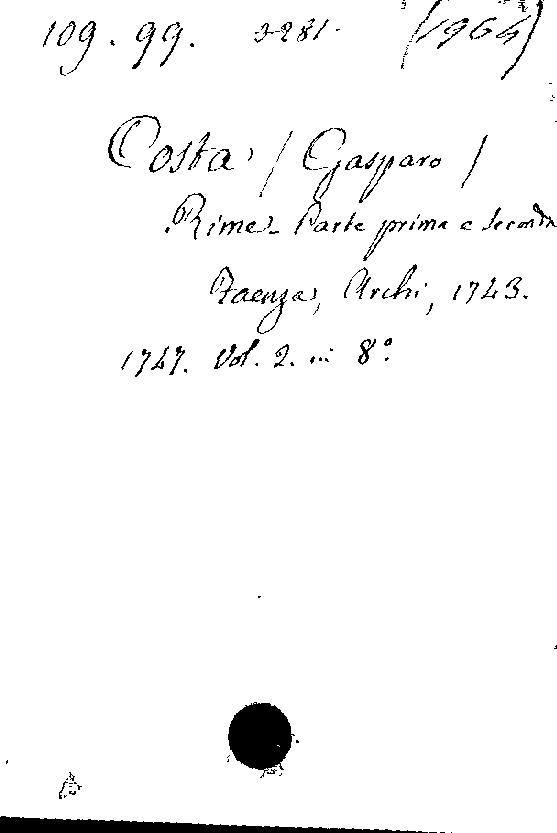 109. 99. 2281. (1964)
Costa / Gasparo /
Rime Parte prima e seconda
Faenza, Archi, 1743.
1747. Vol. 2. in 8°.